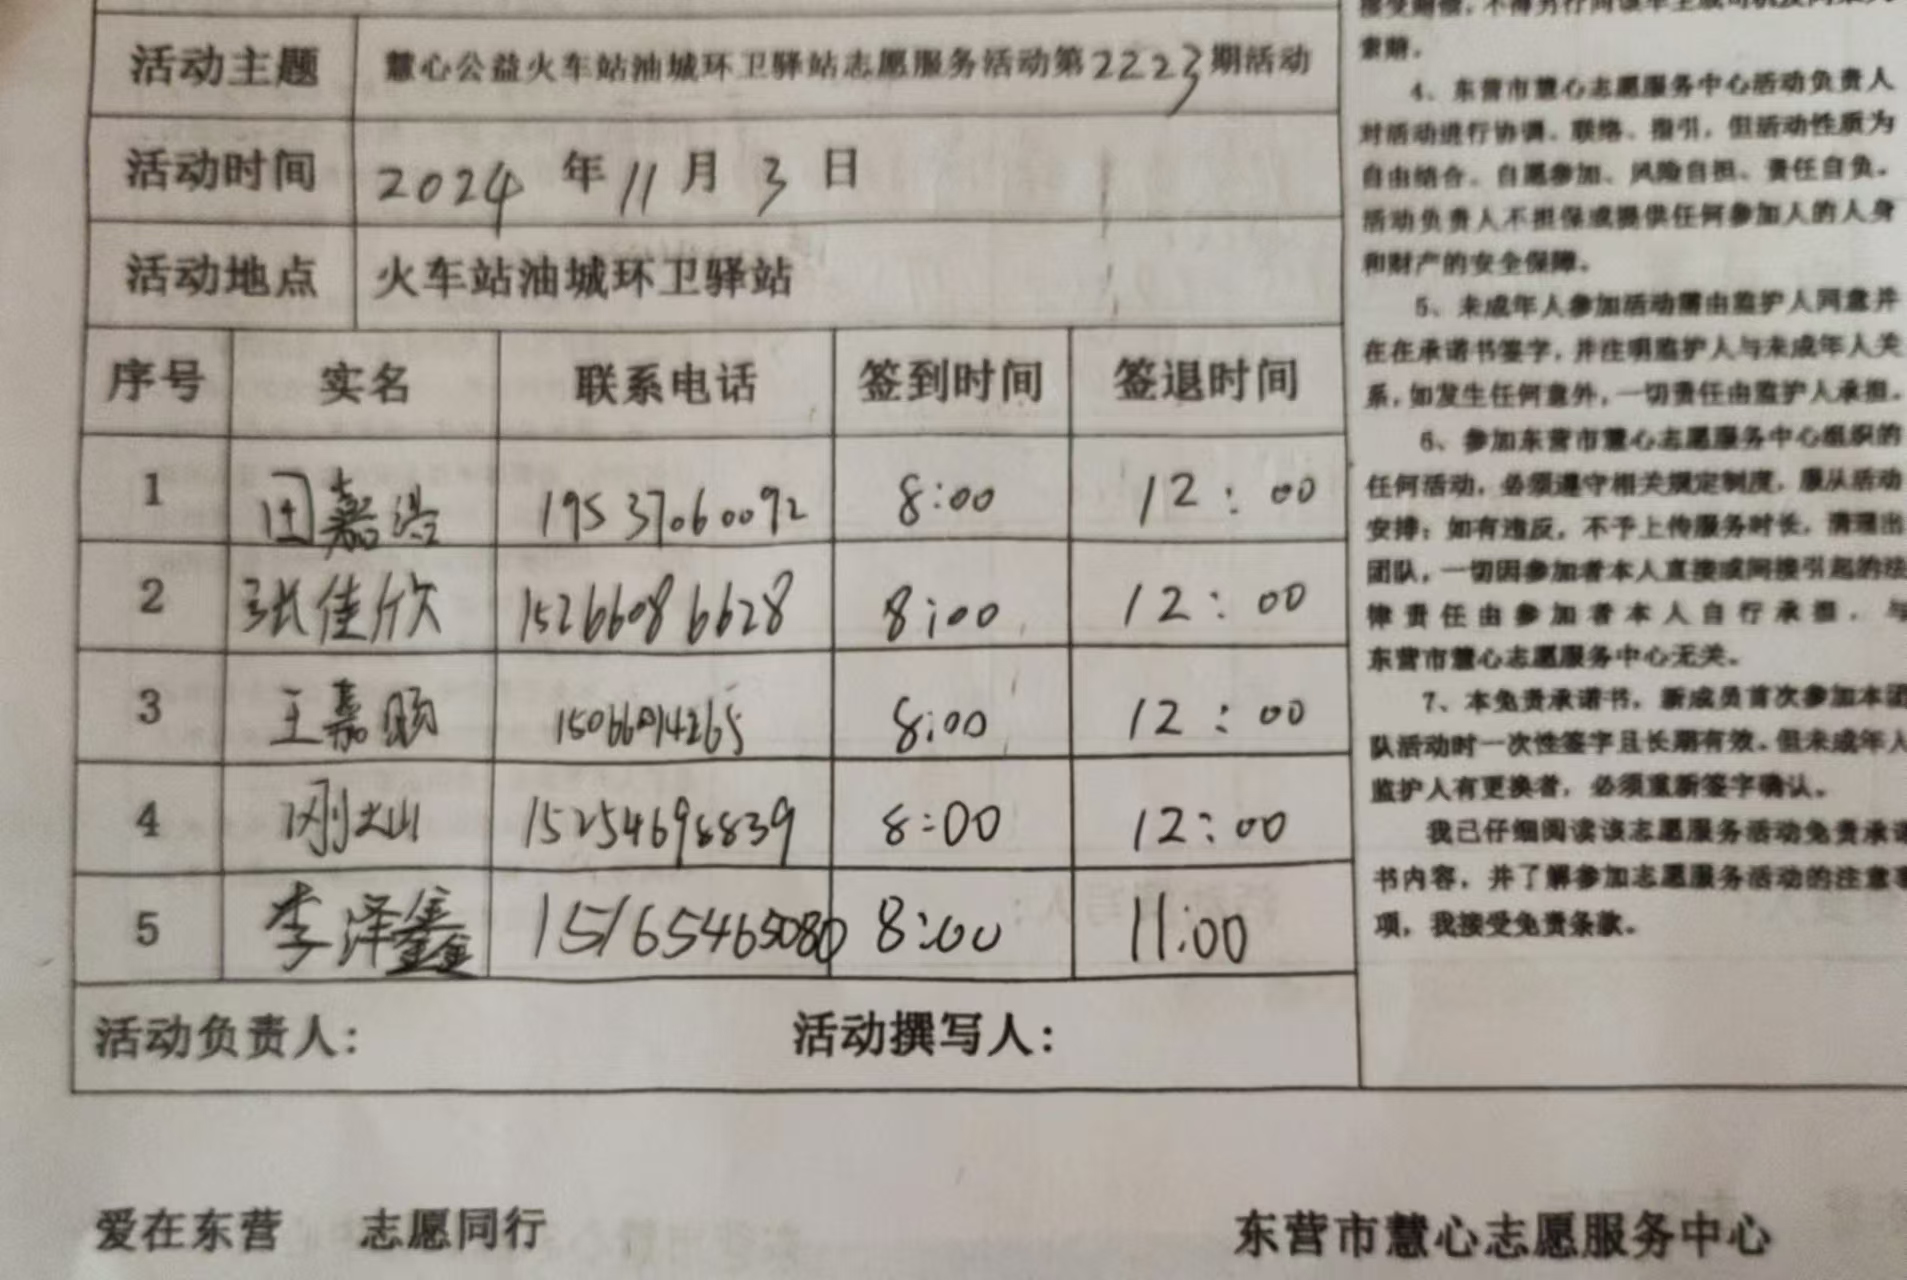 活动主题 慧心公益火车站油城环卫驿站志愿服务活动第2223期活动
活动时间 2024年11月3日
活动地点 火车站油城环卫驿站
序号 实名 联系电话 签到时间 签退时间
1 田嘉浩 19537060092 8:00 12:00
2 张佳欣 15266086628 8:00 12:00
3 王嘉 15066014265 8:00 12:00
4 刚 15254698839 8:00 12:00
5 李泽鑫 15165465080 8:00 11:00
活动负责人: 活动撰写人:
索赔。
4、东营市慧心志愿服务中心活动负责人
对活动进行协调、联络、指引，但活动性质为
自由结合、自愿参加、风险自担、责任自负。
活动负责人不担保或提供任何参加人的人身
和财产的安全保障。
5、未成年人参加活动需由监护人同意并
在在承诺书签字，并注明监护人与未成年人关
系，如发生任何意外，一切责任由监护人承担。
6、参加东营市慧心志愿服务中心组织的
任何活动，必须遵守相关规定制度，服从活动
安排；如有违反，不予上传服务时长，清理出
团队，一切因参加者本人直接或间接引起的法
律责任由参加者本人自行承担，与
东营市慧心志愿服务中心无关。
7、本免责承诺书，新成员首次参加本团
队活动时一次性签字且长期有效。但未成年人
监护人有更换者，必须重新签字确认。
我已仔细阅读该志愿服务活动免责承诺
书内容，并了解参加志愿服务活动的注意事
项，我接受免责条款。
爱在东营 志愿同行
东营市慧心志愿服务中心